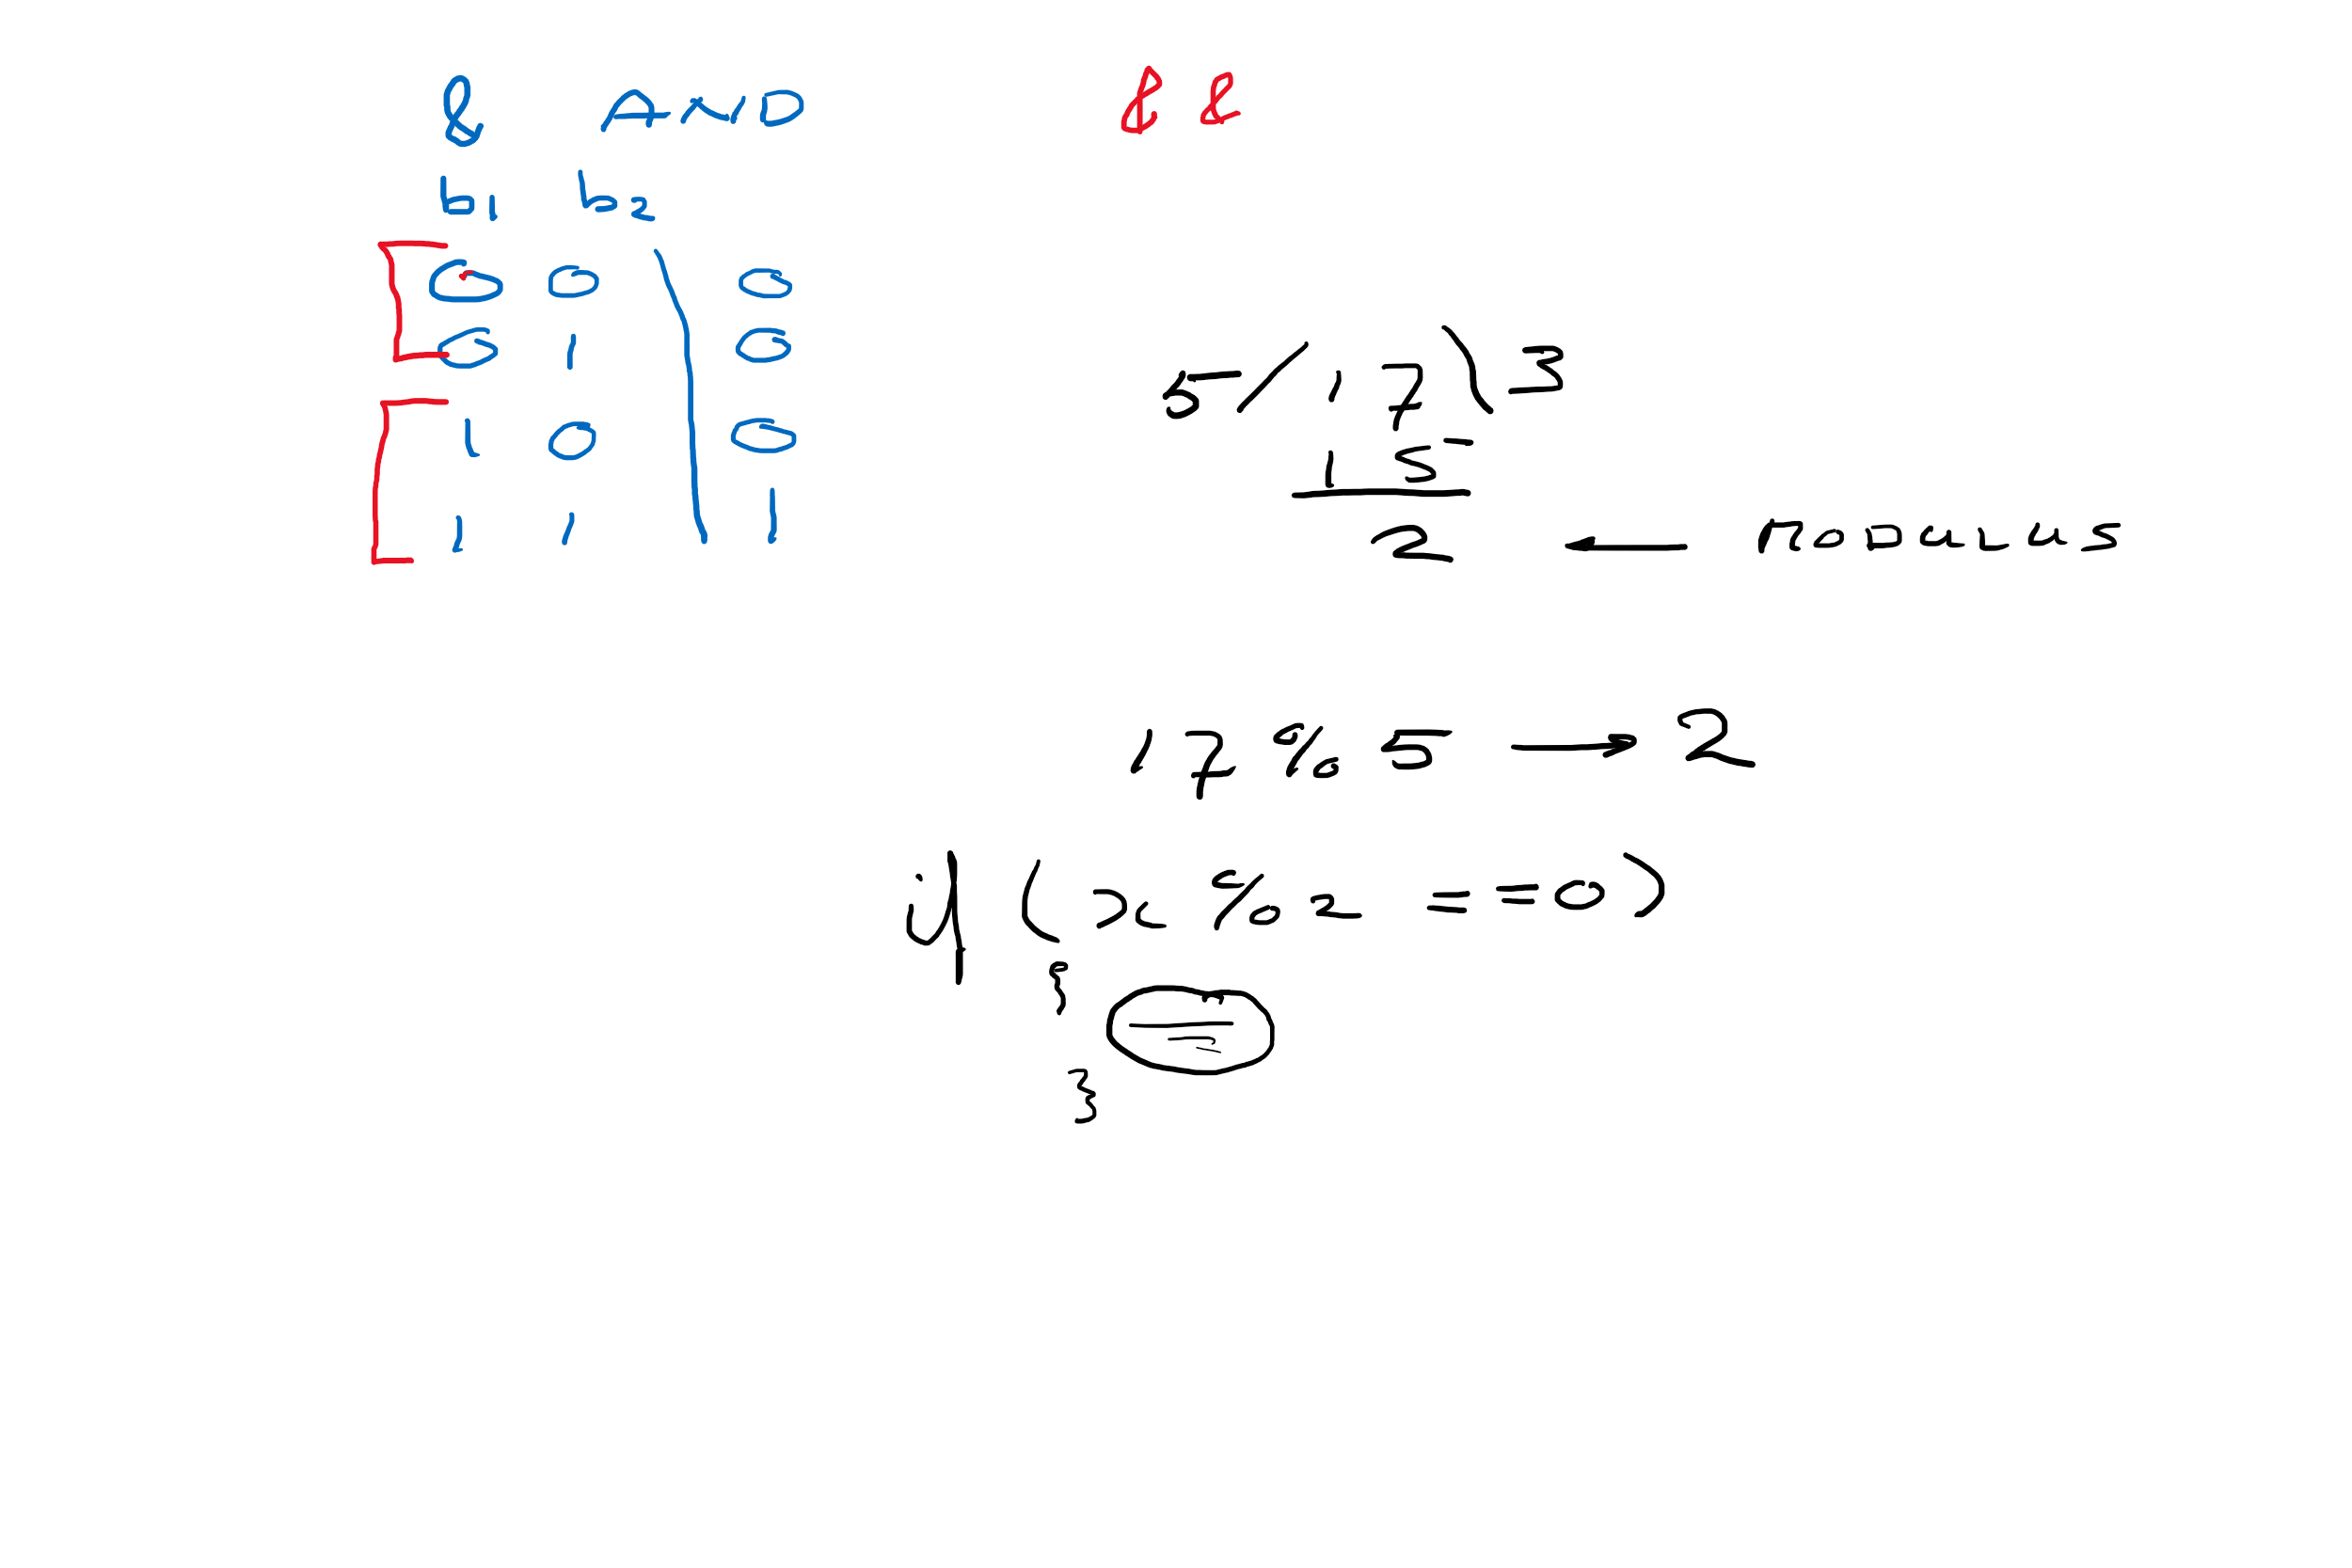 & AND &&
b1 b2
0 0 0
0 1 0
1 0 0
1 1 1
5/17\3
15
2 ← MODULUS
17 % 5 → 2
if (x % 2 == 0)
{
}